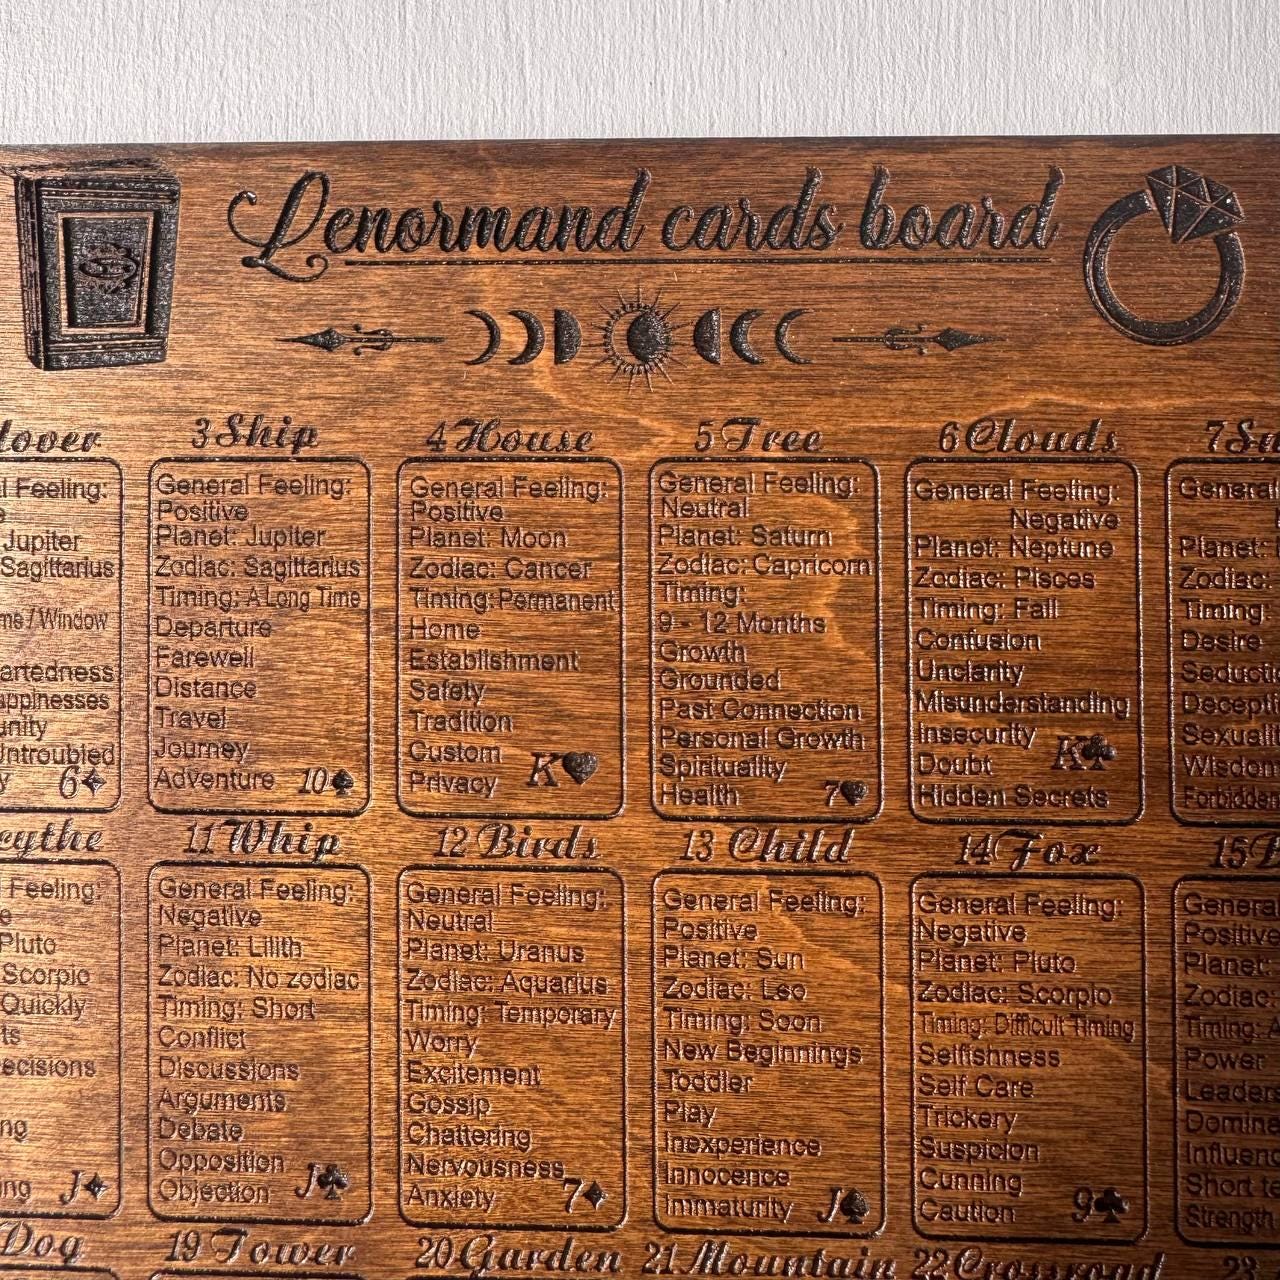 Lenormand cards board
3 Ship
General Feeling:
Positive
Planet: Jupiter
Zodiac: Sagittarius
Timing: A Long Time
Departure
Farewell
Distance
Travel
Journey
Adventure 10♠
4 House
General Feeling:
Positive
Planet: Moon
Zodiac: Cancer
Timing: Permanent
Home
Establishment
Safety
Tradition
Custom
Privacy K♥
5 Tree
General Feeling:
Neutral
Planet: Saturn
Zodiac: Capricorn
Timing:
9 - 12 Months
Growth
Grounded
Past Connection
Personal Growth
Spirituality
Health 7♥
6 Clouds
General Feeling:
Negative
Planet: Neptune
Zodiac: Pisces
Timing: Fall
Confusion
Unclarity
Misunderstanding
Insecurity
Doubt K♣
Hidden Secrets
7
General
Planet:
Zodiac:
Timing:
Desire
Wisdom
Forbidden
Feeling:
Jupiter
Sagittarius
/ Window
Untroubled
6♦
11 Whip
General Feeling:
Negative
Planet: Lilith
Zodiac: No zodiac
Timing: Short
Conflict
Discussions
Arguments
Debate
Opposition
Objection J♣
12 Birds
General Feeling:
Neutral
Planet: Uranus
Zodiac: Aquarius
Timing: Temporary
Worry
Excitement
Gossip
Chattering
Nervousness
Anxiety 7♦
13 Child
General Feeling:
Positive
Planet: Sun
Zodiac: Leo
Timing: Soon
New Beginnings
Toddler
Play
Inexperience
Innocence
Immaturity J♠
14 Fox
General Feeling:
Negative
Planet: Pluto
Zodiac: Scorpio
Timing: Difficult Timing
Selfishness
Self Care
Trickery
Suspicion
Cunning
Caution 9♣
15
General
Positive
Planet:
Zodiac:
Timing:
Power
Short
Strength
Feeling:
Pluto
Scorpio
Quickly
J♦
Dog
19 Tower
20 Garden
21 Mountain
22 Crossroad
23